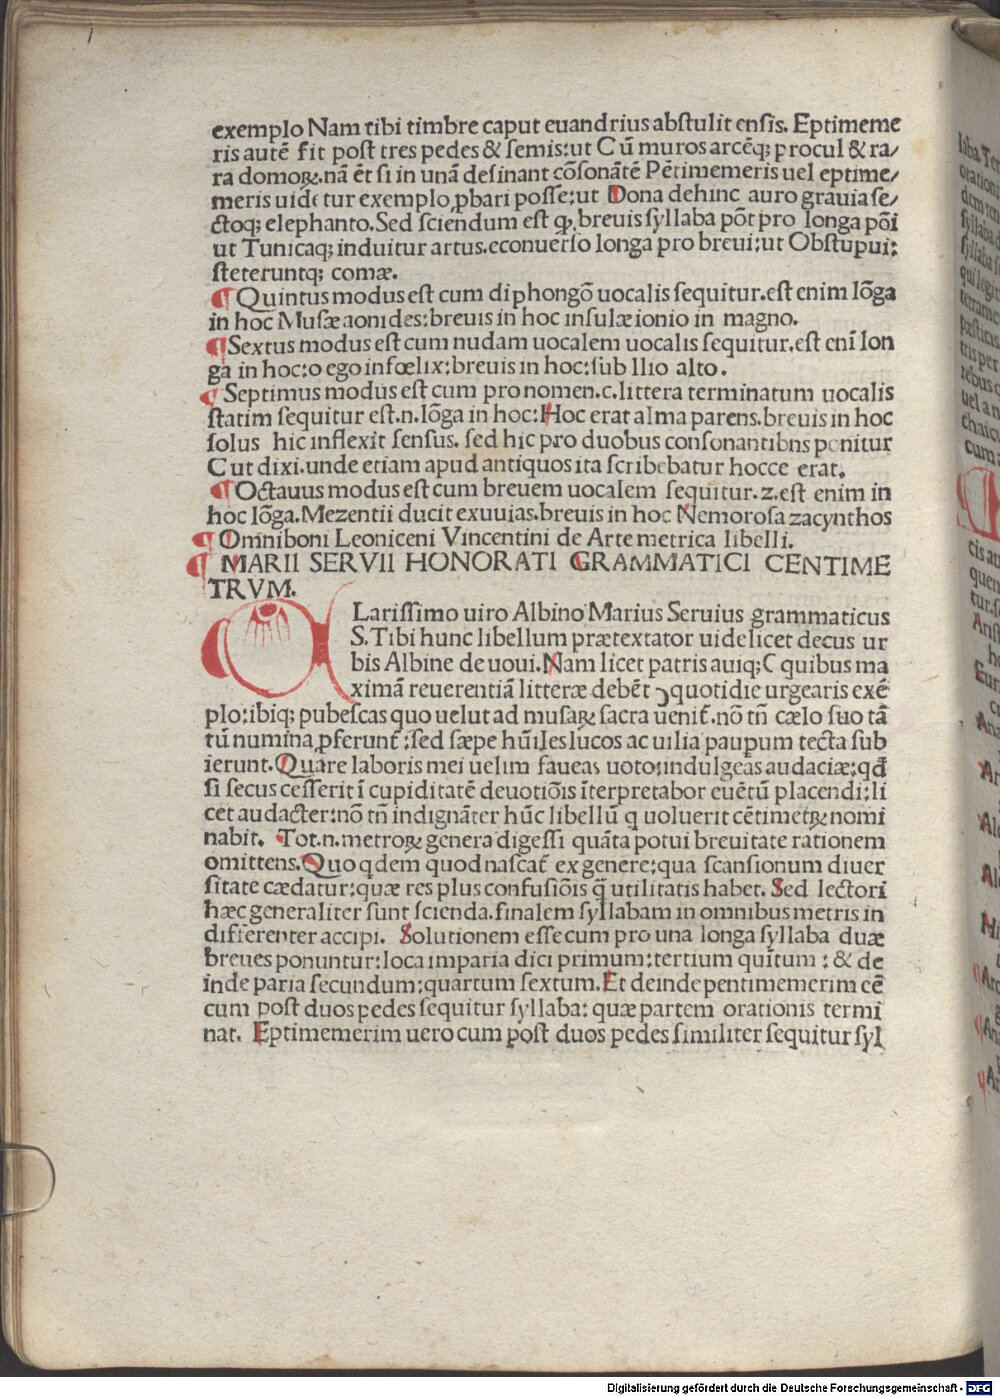 exemplo Nam tibi timbre caput euandrius abſtulit enſis. Eptimeme
ris autē fit poſt tres pedes & ſemis:ut C ū muros arcēq; procul & ra/
ra domoꝝ.nā ēt ſi in unā deſinant cōſonātē Pētimemeris uel eptime/
meris uidetur exemplo ꝓbari poſſe:ut Dona dehinc auro grauia ſe/
ctoq; elephanto.Sed ſciendum eſt ꝙ breuis ſyllaba pōt pro longa pōi
ut Tunicaq; induitur artus.econuerſo longa pro breui:ut Obſtupui:
ſteteruntq; comæ.
¶ Quintus modus eſt cum diphongō uocalis ſequitur.eſt enim lōga
in hoc Muſæ aonides:breuis in hoc inſulæ ionio in magno.
¶ Sextus modus eſt cum nudam uocalem uocalis ſequitur.eſt eni̅ lon
ga in hoc:o ego infœlix:breuis in hoc:ſub Ilio alto.
¶ Septimus modus eſt cum pronomen.c.littera terminatum uocalis
ſtatim ſequitur eſt.n.lōga in hoc:Hoc erat alma parens.breuis in hoc
ſolus hic inflexit ſenſus. ſed hic pro duobus conſonantibns ponitur
C ut dixi.unde etiam apud antiquos ita ſcribebatur hocce erat.
¶ Octauus modus eſt cum breuem uocalem ſequitur.z.eſt enim in
hoc lōga.Mezentii ducit exuuias.breuis in hoc Nemoroſa zacynthos
¶ Omniboni Leoniceni Vincentini de Arte metrica libelli.
¶ MARII SERVII HONORATI GRAMMATICI CENTIME
TRVM.
C Lariſſimo uiro Albino Marius Seruius grammaticus
S.Tibi hunc libellum prætextator uidelicet decus ur
bis Albine deuoui.Nam licet patris auiq; C quibus ma
ximā reuerentiā litteræ debēt ꝯquotidie urgearis exē
plo:ibiq; pubeſcas quo uelut ad muſaꝝ ſacra uenit̄.nō tn̄ cælo ſuo tā
tū numina ꝓferunt̄:ſed ſæpe hūiles lucos ac uilia paupum tecta ſub
ierunt.Quare laboris mei uelim faueas uoto:indulgeas audaciæ:qd̄
ſi ſecus ceſſerit ī cupiditatē deuotiōis īterpretabor euētū placendi:li
cet audacter:nō tn̄ indignāter hūc libellū q uoluerit cētimetꝝ nomi
nabit. Tot.n.metroꝝ genera digeſſi quāta potui breuitate rationem
omittens.Quo qdem quod naſcat̄ ex genere:qua ſcanſionum diuer
ſitate cædatur:quæ res plus confuſiōis q̄ utilitatis habet. Sed lectori
hæc generaliter ſunt ſcienda.finalem ſyllabam in omnibus metris in
differenter accipi. Solutionem eſſe cum pro una longa ſyllaba duæ
breues ponuntur:loca imparia dici primum:tertium quītum : & de
inde paria ſecundum:quartum ſextum.Et deinde pentimemerim eē
cum poſt duos pedes ſequitur ſyllaba: quæ partem orationis termi
nat. Eptimemerim uero cum poſt duos pedes ſimiliter ſequitur ſyl
Digitalisierung gefördert durch die Deutsche Forschungsgemeinschaft - DFG